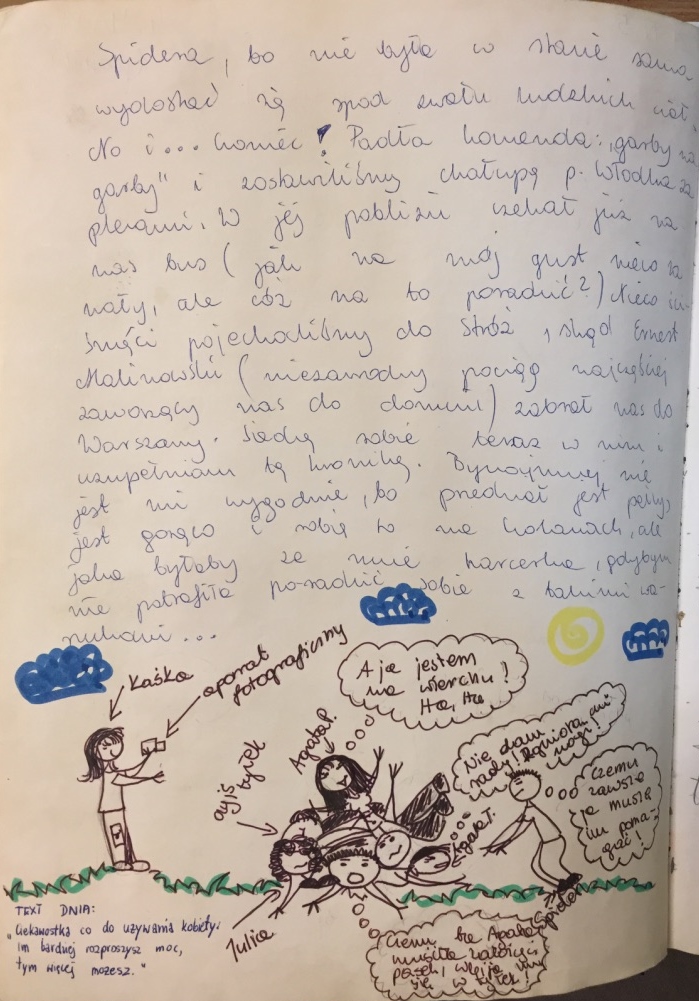 Spidera, bo nie była w stanie sama
wydostać się spod zwału ludzkich ciał.
No i... koniec! Padła komenda: „garby na
garby" i zostawiliśmy chałupę p. Włodka za
plecami. W jej pobliżu czekał już na
nas bus (jak na mój gust nieco za
mały, ale cóż na to poradzić?) Nieco
ściśnięci pojechaliśmy do Stróż, skąd Ernest
Malinowski (niezawodny pociąg najczęściej
zawożący nas do domciu) zabrał nas do
Warszawy. Siedzę sobie teraz w nim i
uzupełniam tą kronikę. Bynajmniej nie
jest mi wygodnie, bo przedział jest pełny,
jest gorąco i robię to na kolanach, ale
jaka byłaby ze mnie harcerka, gdybym
nie potrafiła poradzić sobie z takimi wa-
runkami...
Kaśka
aparat
fotograficzny
A ja jestem
na wierchu!
Ha, Ha
Agata P.
czyjś
tyłek
Nie dam
rady! ani
nogi!
Czemu
zawsze
ja muszę
im poma-
gać!
Agata Ł.
Julia
Spider
Czemu ta Agata
musiała założyć
pasek, wbija mi
się w tyłek!
TEXT DNIA:
"Ciekawostka co do używania kobiety:
im bardziej rozproszysz moc,
tym więcej możesz."